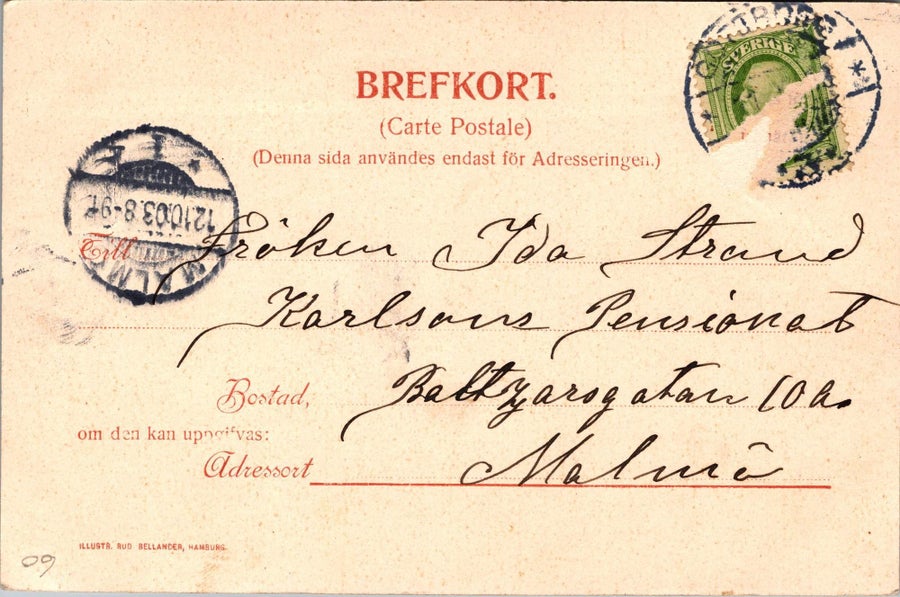 SVERIGE
BREFKORT.
(Carte Postale)
(Denna sida användes endast för Adresseringen.)
12.10.03. 8-9 F.
MALMÖ
Till Fröken Ida Strand
Karlsons Pensionat
Bostad, Baltzarsgatan 10 a.
om den kan uppgifvas:
Adressort Malmö
ILLUSTR. RUD BELLANDER, HAMBURG.
09